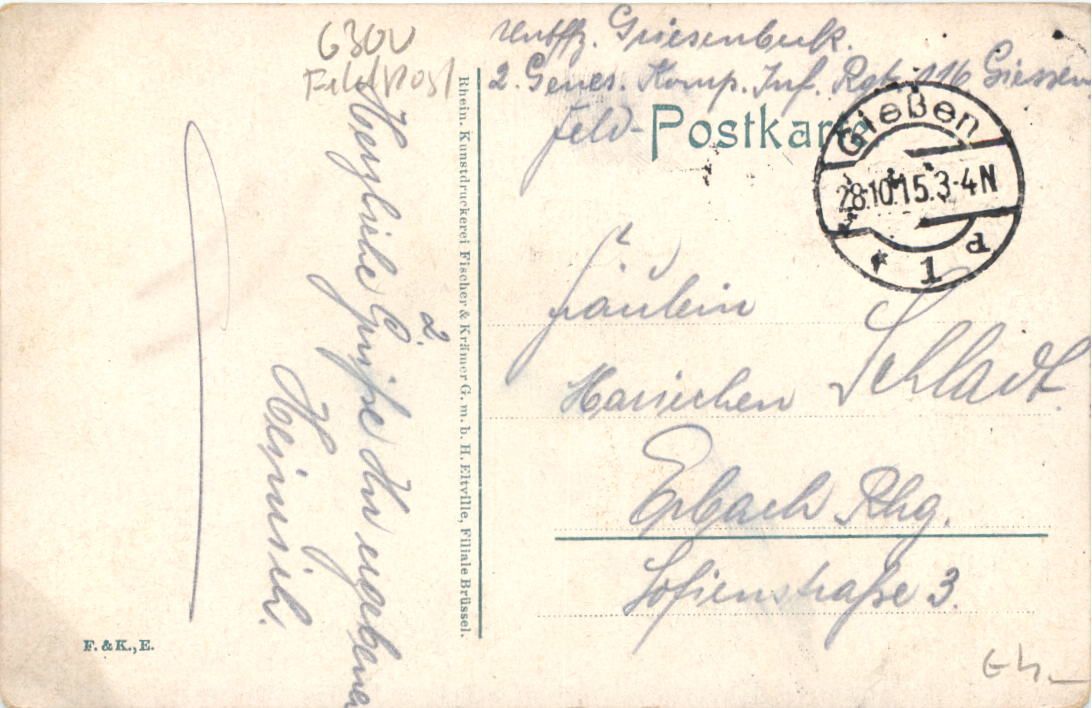 6300
Feldpost
Untffz. Griesenbeck.
2. Genes. Komp. Inf. Rgt. 116 Giessen
Feld-Postkarte
Gießen
28.10.15.3-4N
* 1 d
Fräulein
Mariechen Schladt.
Erbach Rhg.
Sofienstraße 3.
Herzliche Grüße
2.
Heinrich.
Rhein. Kunstdruckerei Fischer & Krämer G. m. b. H. Eltville, Filiale Brüssel.
F. & K., E.